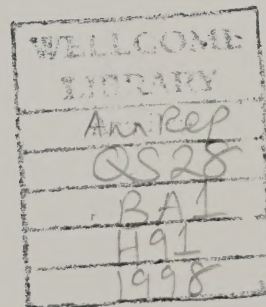 WELLCOME
LIBRARY
Ann Rep
QS28
BA1
H91
1998